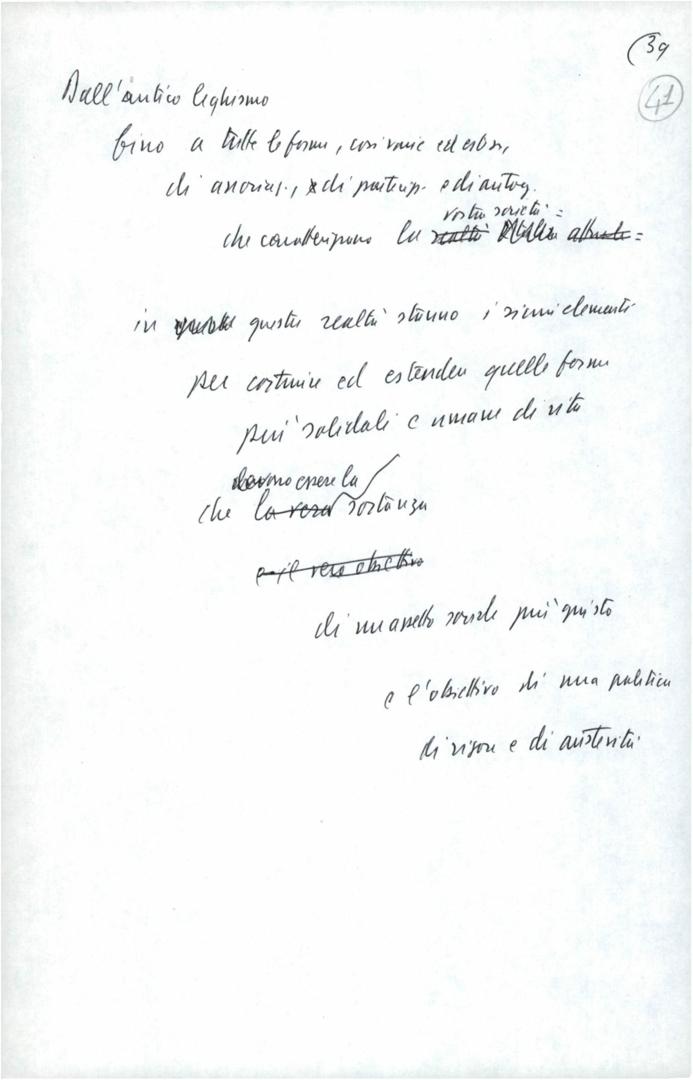 (39
41
Dall'antico leghismo
fino a tutte le forme, così varie ed estese,
di associaz., di partecip. e di autog.
vostra società =
che caratterizzano la realtà attuale =
in questa realtà stanno i sicuri elementi
per costruire ed estendere quelle forme
più solidali e umane di vita
devono essere la
che la vera sostanza
e il vero obiettivo
di un assetto sociale più giusto
e l'obiettivo di una politica
di rigore e di austerità